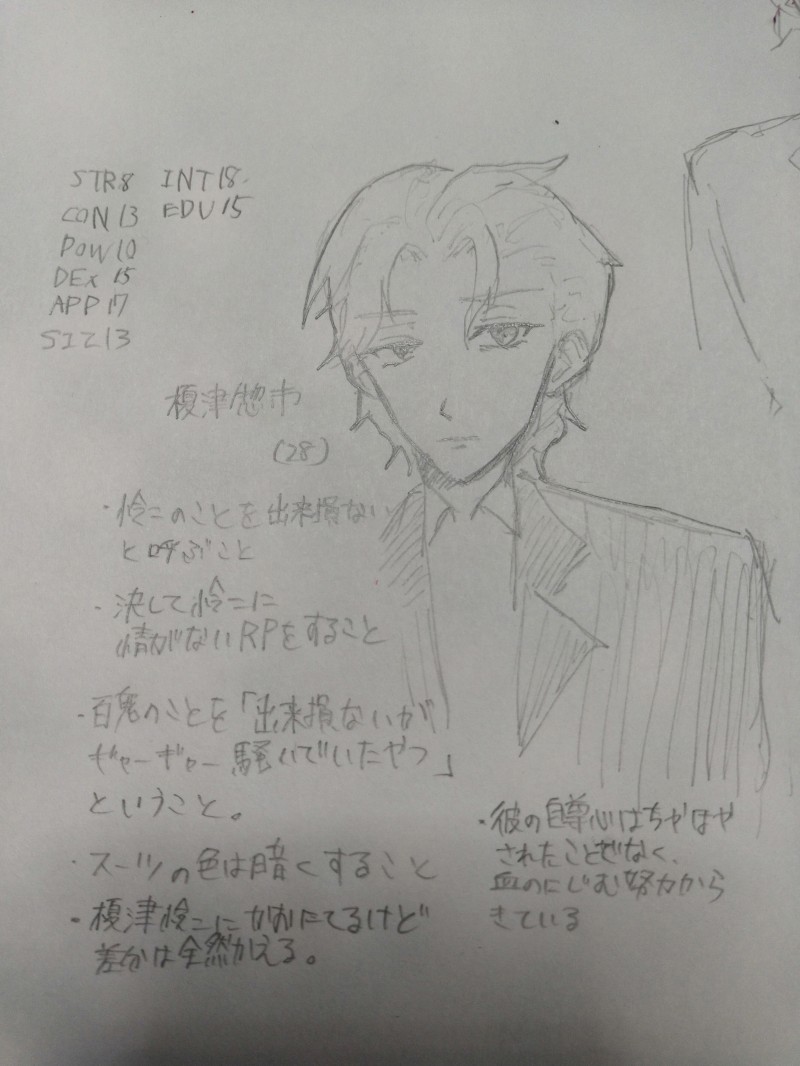 STR8 INT18
CON13 EDU15
POW10
DEX 15
APP17
SIZ13
榎津惣市
(28)
・怜二のことを出来損ない
と呼ぶこと
・決して怜二に
情がないRPをすること
・百鬼のことを「出来損ないが
ギャーギャー騒いでいたやつ」
ということ。
・スーツの色は暗くすること
・榎津怜二にかおにてるけど
差かは全然かえる。
・彼の自尊心はちやほや
されたことでなく、
血のにじむ努力から
きている